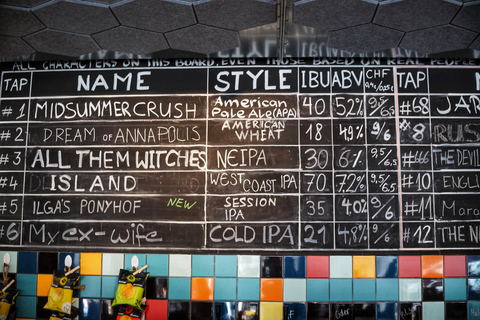 ALL CHARACTERS ON THIS BOARD, EVEN THOSE BASED ON REAL PEOPLE
TAP NAME STYLE IBU ABV CHF TAP
#1 MIDSUMMER CRUSH American Pale Ale (APA) 40 52% 9,5/6,5 #68 JAR
#2 DREAM OF ANNAPOLIS AMERICAN WHEAT 18 4,9% 9/6 #8
#3 ALL THEM WITCHES NEIPA 30 6% 9,5/6,5 #666 THE DEVIL
#4 ISLAND WEST COAST IPA 70 7,2% 9,5/6,5 #10 ENGLI
#5 ILGA'S PONYHOF NEW SESSION IPA 35 4.02 9/6 #11 Mara
#6 My ex-wife COLD IPA 21 4,8% 9/6 #12 THE N